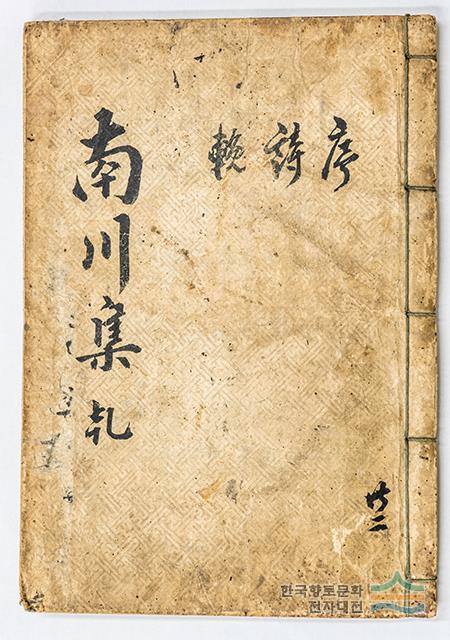 序詩輓
共二
南川集 乾
한국향토문화
전자대전